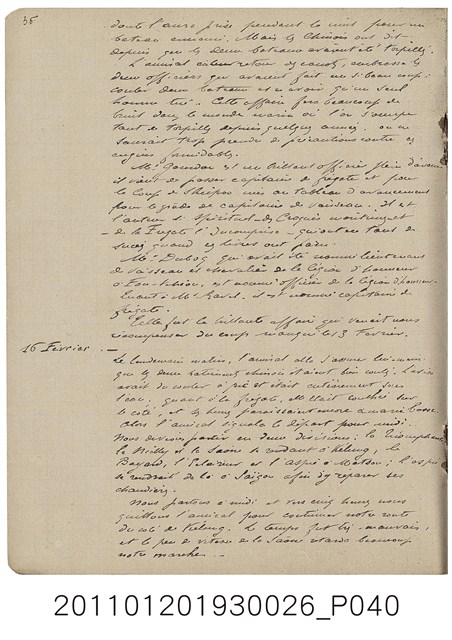 38
dont l'aura prise pendant la nuit pour un
bateau ennemi. Mais les Chinois ont dit
depuis que les deux bateaux avaient été torpillés.
L'amiral au retour des canots, embrassa les
deux officiers qui avaient fait un si beau coup :
couler deux bateaux et n'avoir qu'un seul
homme tué. Cette affaire fera beaucoup de
bruit dans le monde marin où l'on s'occupe
tant de torpilles depuis quelques années. on ne
saurait trop prendre de précautions contre ces
engins formidables.
Mr Gourdon est un brillant officier plein d'avenir
il vient de passer capitaine de frégate et pour
le coup de Sheïpoo mis au tableau d'avancement
pour le grade de capitaine de vaisseau. Il est
l'auteur si spirituel des Croquis maritimes et
de la Frégate l'Incomprise - qui ont eu tant de
succès quand ces livres ont paru.
Mr Duboc qui avait été nommé lieutenant
de vaisseau et chevalier de la légion d'honneur
à Fou-tchéou, est nommé officier de la légion d'honneur.
Quant à Mr Ravel, il est nommé capitaine de
frégate.
Telle fut la brillante affaire qui venait nous
récompenser du coup manqué les 3 Février.
16 Février. —
Le lendemain matin, l'amiral alla s'assurer lui-même
que les deux bâtiments chinois étaient bien coulés.
avait du couler à pic et était entièrement sous
l'eau. quant à la frégate, elle était couchée sur
le côté, et les hunes paraissaient encore à marée basse.
Alors l'amiral signala le départ pour midi.
Nous devions partir en deux divisions : la Triomphante
le Nielly et la Saône se rendant à Kelung, le
Bayard, l'Eclaireur et l'Aspic à Matsou ; l'Aspic
se rendrait de là à Saïgon afin d'y réparer ses
chaudières.
Nous partons à midi et vers cinq heures nous
quittons l'amiral pour continuer notre route
du côté de Kelung. Le temps fut très mauvais,
et le peu de vitesse de la Saône retarda beaucoup
notre marche. —
201101201930026_P040